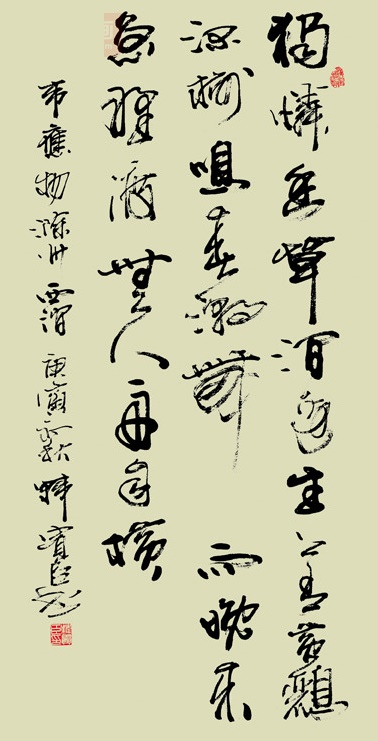 獨憐幽草澗邊生上有黃鸝
深樹鳴春潮帶雨晚來
急野渡無人舟自橫
韋應物滁州西澗 庚寅秋